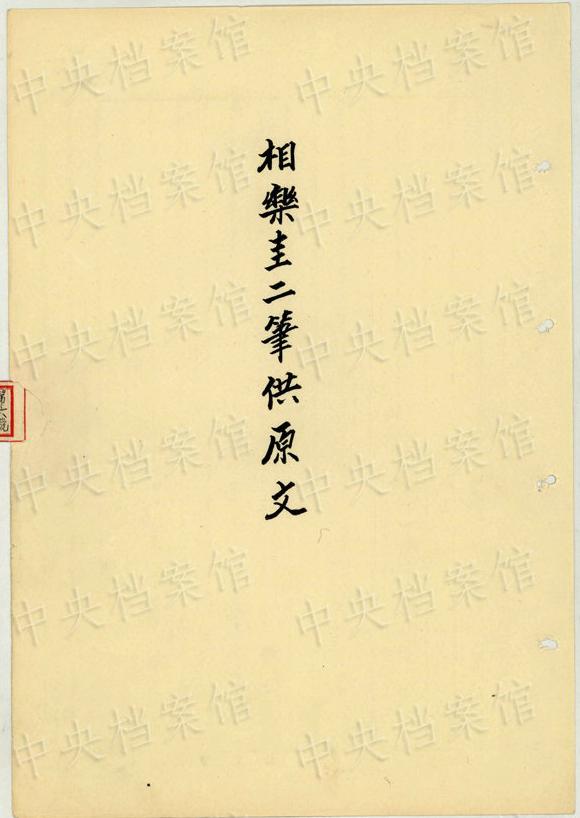 相樂圭二筆供原文
中央档案馆 中央档案馆
中央档案馆 中央档案馆
中央档案馆 中央档案馆
中央档案馆 中央档案馆
中央档案馆 中央档案馆
中央档案馆 中央档案馆